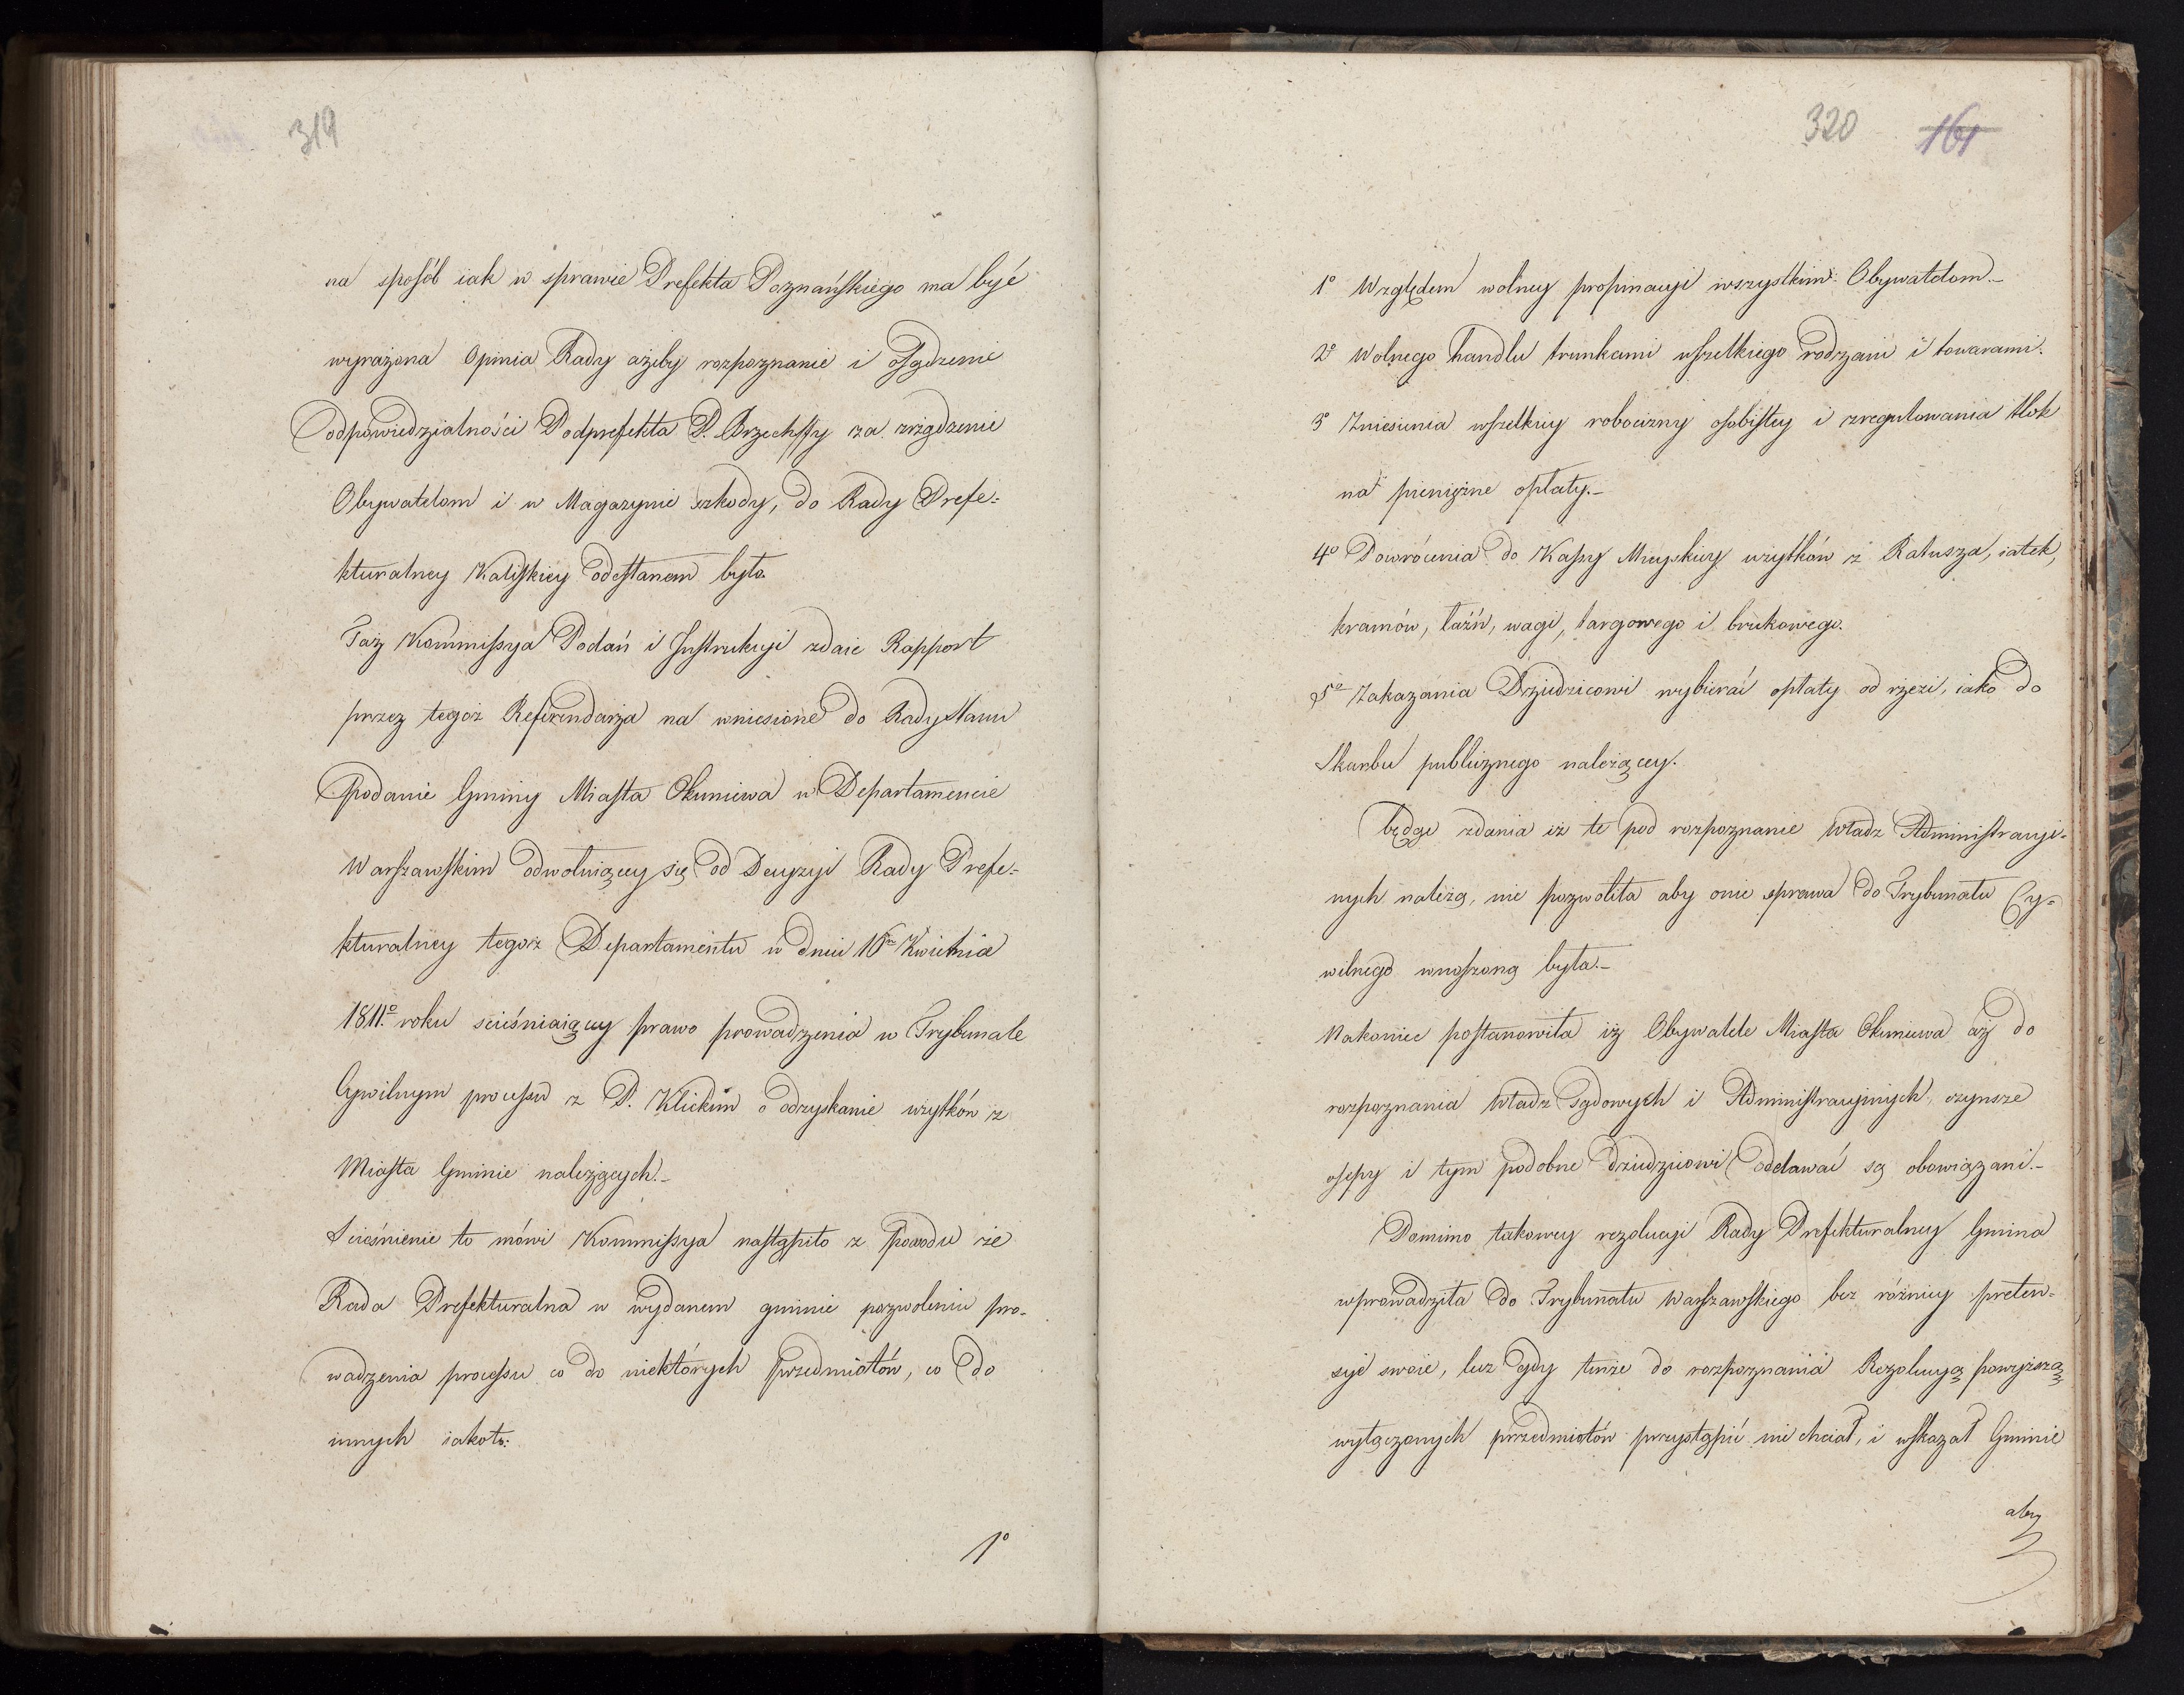 319
na sposób iak w sprawie Prefekta Poznańskiego ma być
wyrażona Opinia Rady ażeby rozpoznanie i osądzenie
odpowiedzialności Podprefekta P. Brzechffy za zrządzenie
Obywatelom i w Magazynie szkody, do Rady Prefe=
kturalney Kaliskiey odesłanem było.
Taż Kommissya Podań i Instrukcyi zdaie Rapport
przez tegoż Referendarza na wniesione do Rady Stanu
podanie Gminy Miasta Okuniewa w Departamencie
Warszawskim odwołuiącey się od Decyzyi Rady Prefe=
kturalney tegoż Departamentu w dniu 16 Kwietnia
1811º roku sciesniaiącey prawo prowadzenia w Trybunale
Cywilnym processu z P. Klickim o odzyskanie użytków z
Miasta Gminie należących.-
Scieśnienie to mówi Kommissya nastąpiło z powodu że
Rada Prefekturalna w wydanem gminie pozwoleniu pro-
wadzenia processu co do niektórych przedmiotów, co do
innych iakoto:
1º
320 161
1º Względem wolney propinacyi wszystkim Obywatelom.-
2º Wolnego handlu trunkami wszelkiego rodzaiu i towarami.
3º Zniesienia wszelkiey robocizny osobistey i zregulowania tłok
na pieniężne opłaty.-
4º Powrócenia do Kassy Mieyskiey użytków z Ratusza, iatek,
kramów, łaźń, wagi, targowego i brukowego.
5º Zakazania Dziedzicowi wybierać opłaty od rzezi, iako do
Skarbu publicznego należącey.
będąc zdania iż te pod rozpoznanie Władz Administracyi-
nych należą, nie pozwoliła aby o nie sprawa do Trybunału Cy=
wilnego wnoszoną była.-
Nakoniec postanowiła iż Obywatele Miasta Okuniewa aż do
rozpoznania Władz Sądowych i Administracyinych, czynsze
osepy i tym podobne dziedzicowi oddawać są obowiązani.-
Pomimo takowey rezolucyi Rady Prefekturalney Gmina
wprowadziła do Trybunału Warszawskiego bez różnicy preten-
syie swoie, lecz gdy tenże do rozpoznania Rezolucyą powyższą
wyłączonych przedmiotów przystąpić nie chciał, i wskazał Gminie
aby